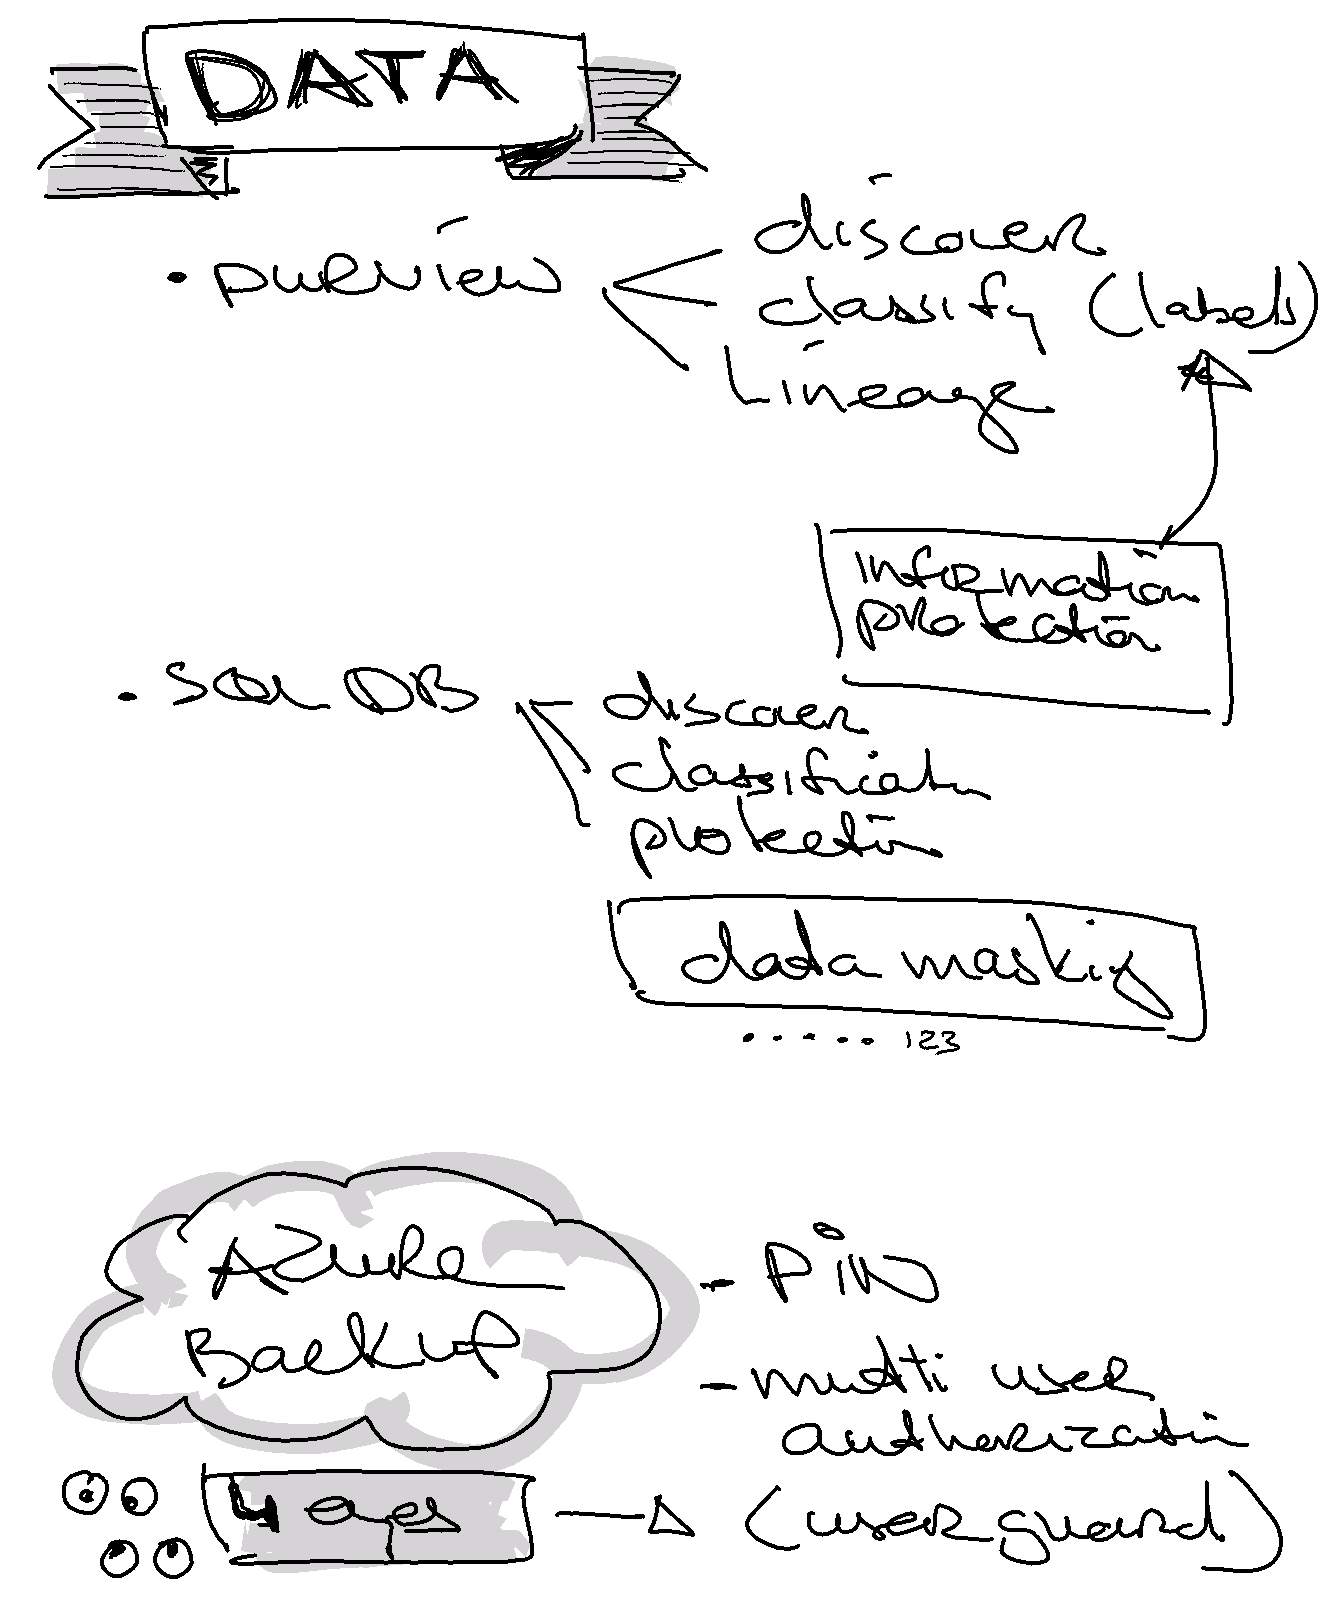 DATA
• purview
discover
classify (labels)
Lineage
information
protection
• SQL DB
discover
classificatn
protection
data masking
..... 123
Azure
Backup
- PIN
- multi user
authorization
4 eyes
(user guard)